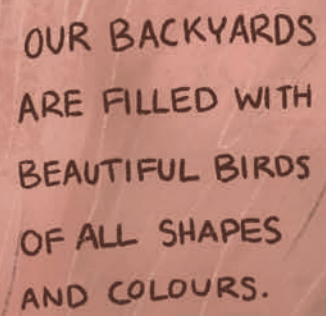 OUR BACKYARDS
ARE FILLED WITH
BEAUTIFUL BIRDS
OF ALL SHAPES
AND COLOURS.